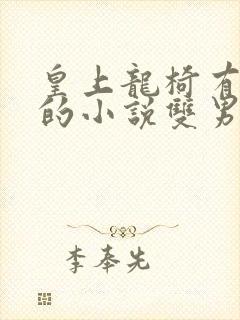 皇上龍椅有
的小說雙男
李奉先